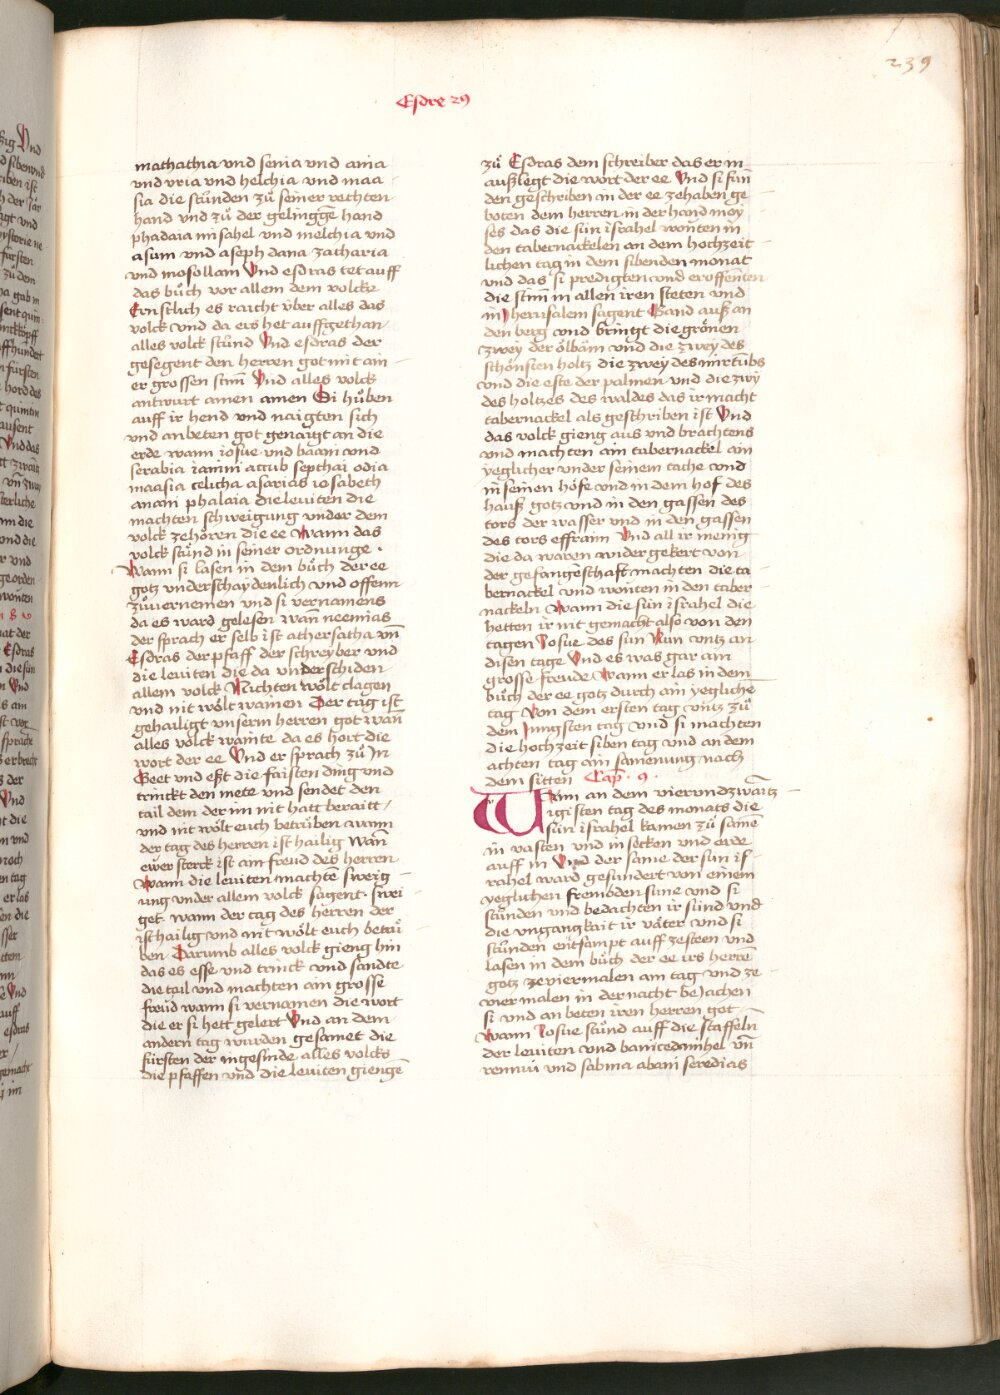 239
Esdre 29
mathathia vnd senia vnd ania
vnd vria vnd helchia vnd maa
sia die stůnden zů seiner rechten
hand vnd zů der gelingge hand
phadaia misahel vnd melchia vnd
asum vnd aseph dana zacharia
vnd mosollam Vnd esdras tet auff
das bůch vor allem dem volcke
Ernstlich es raicht über alles das
volck vnd da ers het auffgethan
alles volck stůnd Vnd esdras der
gesegent den herren got mit ain
er grossen stim Vnd alles volck
antwurt amen amen Si hůben
auff ir hend vnd naigten sich
vnd anbeten got genaigt an die
erde wann iosue vnd baani vnd
serabia iamin accub septhai odia
maasia celitha asarias iosabeth
anani phalaia die leuiten die
machten schweigung vnder dem
volck zehören die ee Wann das
volck stůnd in seiner ordnunge
Wann si lasen in dem bůch der ee
gotz vnderschaydenlich vnd offenn
zůuernemen vnd si vernamens
da es ward gelesen wan̄ neemias
der sprach er selb ist athersatha vn̄
Esdras der pfaff der schreyber vnd
die leuiten die da vnderschiden
allem volck Nichten wölt clagen
vnd nit wölt wainen Der tag ist
gehailigt vnserm herren got wan̄
alles volck wainte da es hort die
wort der ee Vnd er sprach zů In
Geet vnd eßt die faisten ding vnd
trinckt den mete vnd sendet den
tail dem der im nit hatt beraitt
vnd nit wölt euch betrüben wann
der tag des herren ist hailig Wan̄
ewer sterck ist ain freud des herren
Wann die leuiten machtē sweig
ung vnder allem volck sagent swei
get wann der tag des herren der
ist hailig vnd nit wölt euch betrü
ben Darumb alles volck gieng hin
das es esse vnd trinck vnd sandte
die tail vnd machten ain grosse
freud wann si vernamen die wort
die er si hett gelert Vnd an dem
andern tag wurden gesamet die
fürsten der ingesinde alles volcks
die pfaffen vnd die leuiten giengē
zů Esdras dem schreiber das er in
außlegt die wort der ee Vnd si fun
den geschriben in der ee zehaben ge
boten dem herren in der hand moy
ses das die sün israhel wonten in
den tabernackelen an dem hochzeit
lichen tag in dem sibenden monat
vnd das si predigten vnd eroffenten
die stim in allen iren steten vnd
in Jherusalem sagent Gand auß an
den berg vnd bringt die grönen
zwey der ölbäm vnd die zwey des
schönsten holtz die zwey des mirtūbs
vnd die este der palmen vnd die zwy
des holtzes des waldes das ir macht
tabernackel als geschriben ist Vnd
das volck gieng aus vnd brachtens
vnd machten ain tabernackel ain
yeglicher vnder seinem tache vnd
in seinen höfe vnd in dem hof des
hauß gotz vnd in den gassen des
tors der wasser vnd in den gassen
des tors effraim Vnd all ir menig
die da waren wider gekert von
der gefangeschaft machten die ta
bernackel vnd wonten in den taber
nackeln Wann die sün israhel die
hetten ir nit gemacht also von den
tagen Josue des sun Nun vntz an
disen tage Vnd es was gar ain
grosse freude Wann er las in dem
bůch der ee gotz durch ain yegliche
tag Von dem ersten tag vntz zů
dem Jungsten tag vnd si machten
die hochzeit siben tag vnd an dem
achten tag ain samenung nach
dem sitten Cap . 9 .
Wann an dem vierundzwaintz
igisten tag des monats die
sün israhel kamen zů samē
in vasten vnd in secken vnd erde
auff in Vnd der same der sun is
rahel ward gesundert von einem
yeglichen fremden sune vnd si
stůnden vnd bedachten ir sünd vnd
die vngangkait ir väter vnd si
stůnden entsampt auff zesteen vnd
lasen in dem bůch der ee irs herrē
gotz ze viermalen am tag vnd ze
viermalen in der nacht Beiachen
si vnd an beten iren herren got
Wann Josue stůnd auff die staffeln
der leuiten vnd bani cedmihel vn̄
rennui vnd sabina abani seredias